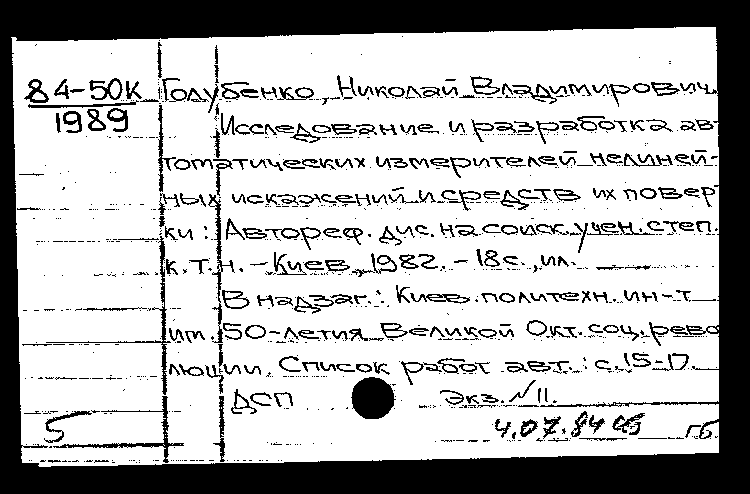 84-50К
1989
Голубенко, Николай Владимирович.
Исследование и разработка ав-
томатических измерителей нелиней-
ных искажений и средств их повер
ки: Автореф. дис. на соиск. учен. степ.
к.т.н. - Киев, 1982. - 18с., ил.
В надзаг.: Киев. политехн. ин-т
им. 50-летия Великой Окт. соц. рево
люции. Список работ авт.: с.15-17.
ДСП Экз. N 11.
5 4.07.84 гб